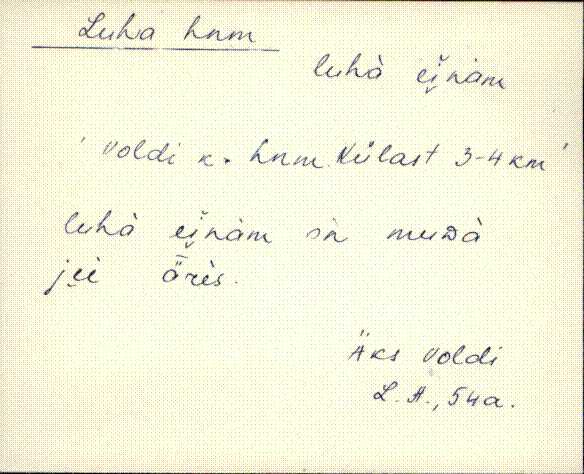 Luha hnm
luhà ei̯nàm
' Voldi k. hnm. Külast 3-4 km '
luhà ei̯nàm òn
jɛ̄ ǟrès.
Äks Voldi
L. A., 54 a.